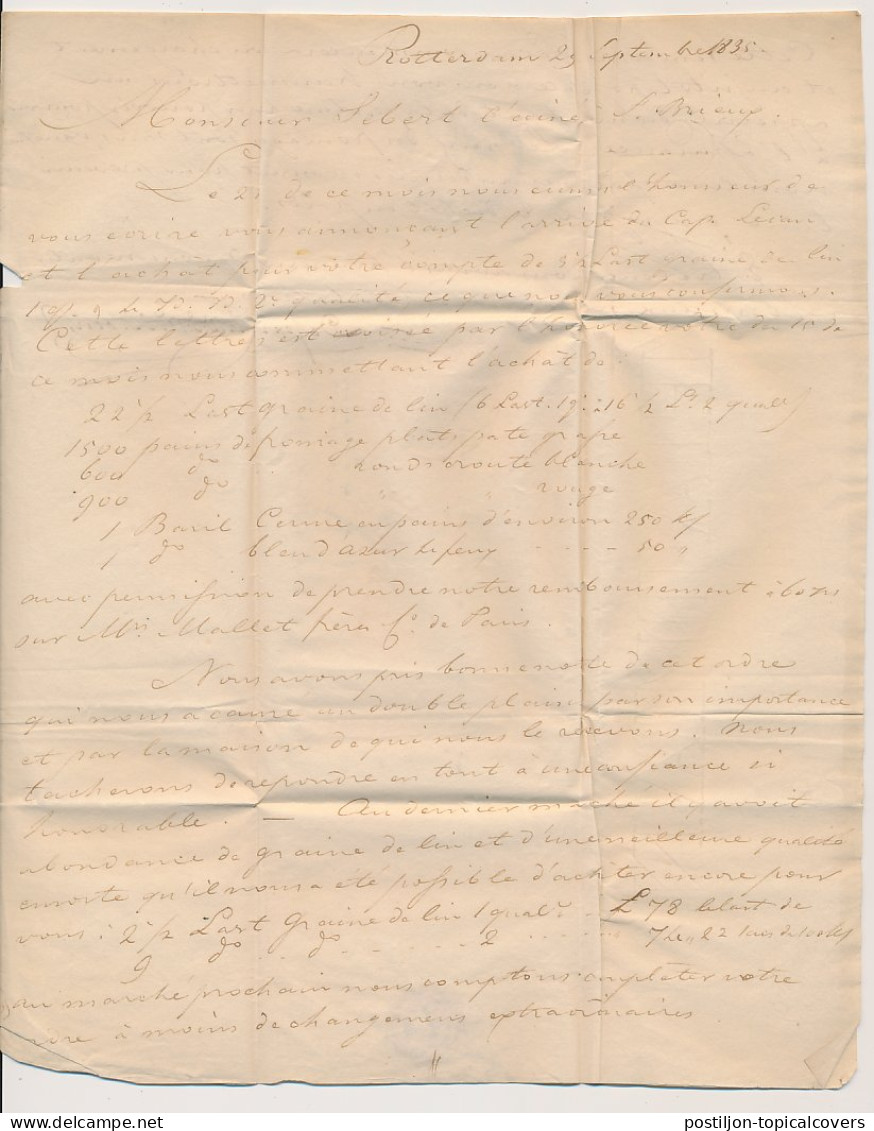 Rotterdam 29 Septembre 1835.
Monsieur Sebert l'ainé S. Brieux.
Le 2 de ce mois nous eumes l'honneur de
vous écrire vous annonçant l'arrivé du Cap. Levau
et l'achât pour vôtre compte de Last graine de lin
2e qualité, ce que nous vous confirmons.
Cette lettre s'est croisée par l'honorée vôtre du 15 de
ce mois nous commettant l'achât de:
22 1/2 Last graine de lin (6 Last 1 q. à 16 1/2 Lt 2 qualé)
1500 pains de fromage plats pate grasse
600 do " ronds croute blanche
900 do " " rouge
1 Baril Ceruse en pains d'environ 250 kf
1 do bleu d'azur - - - - 50 "
avec permission de prendre notre remboursement à
sur Mrs Mallet frères Co. de Paris.
Nous avons pris bonne note de cet ordre
qui nous a causé un double plaisir par son importance
et par la maison de qui nous le recevons. Nous
tacherons de repondre en tout à une confiance si
honorable. — Au dernier marché il y avoit
abondance de graine de lin et d'une meilleure qualité
ensorte qu'il nous a été possible d'achter encore pour
vous: 2 1/2 Last Graine de lin 1 qualé £ 78 le last de
9 do do - - - - 2 - - - - 72 " 22
au marché prochain nous comptons completer votre
ordre à moins de changemens extraordinaires
postiljon-topicalcovers